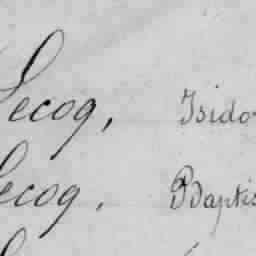 Lecoq, Isido
Lecoq. Baptis